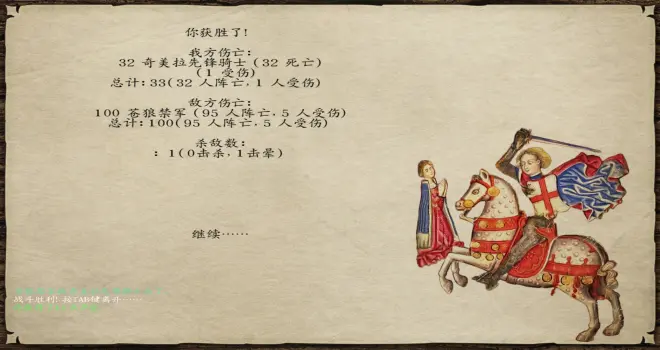 你获胜了!
我方伤亡:
32 奇美拉先锋骑士 (32 死亡)
(1 受伤)
总计: 33(32 人阵亡, 1 人受伤)
敌方伤亡:
100 苍狼禁军 (95 人阵亡, 5 人受伤)
总计: 100(95 人阵亡, 5 人受伤)
杀敌数:
: 1(0击杀, 1击晕)
继续……
战斗胜利! 按TAB键离开……